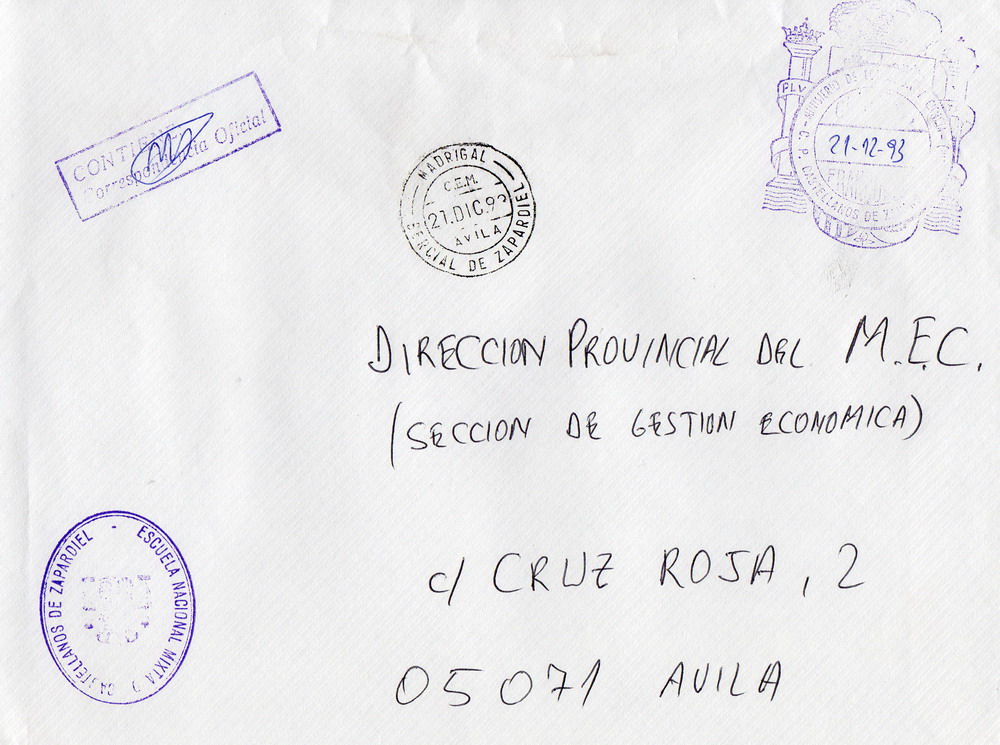 CONTIENE
Correspondencia Oficial
MADRIGAL
C.E.M.
21.DIC.93
AVILA
BERCIAL DE ZAPARDIEL
PLV
MINISTERIO DE
C.P. CASTELLANOS DE
21-12-93
DIRECCION PROVINCIAL DEL M.E.C.
(SECCION DE GESTION ECONOMICA)
c/ CRUZ ROJA, 2
05071 AVILA
ESCUELA NACIONAL MIXTA
CASTELLANOS DE ZAPARDIEL -